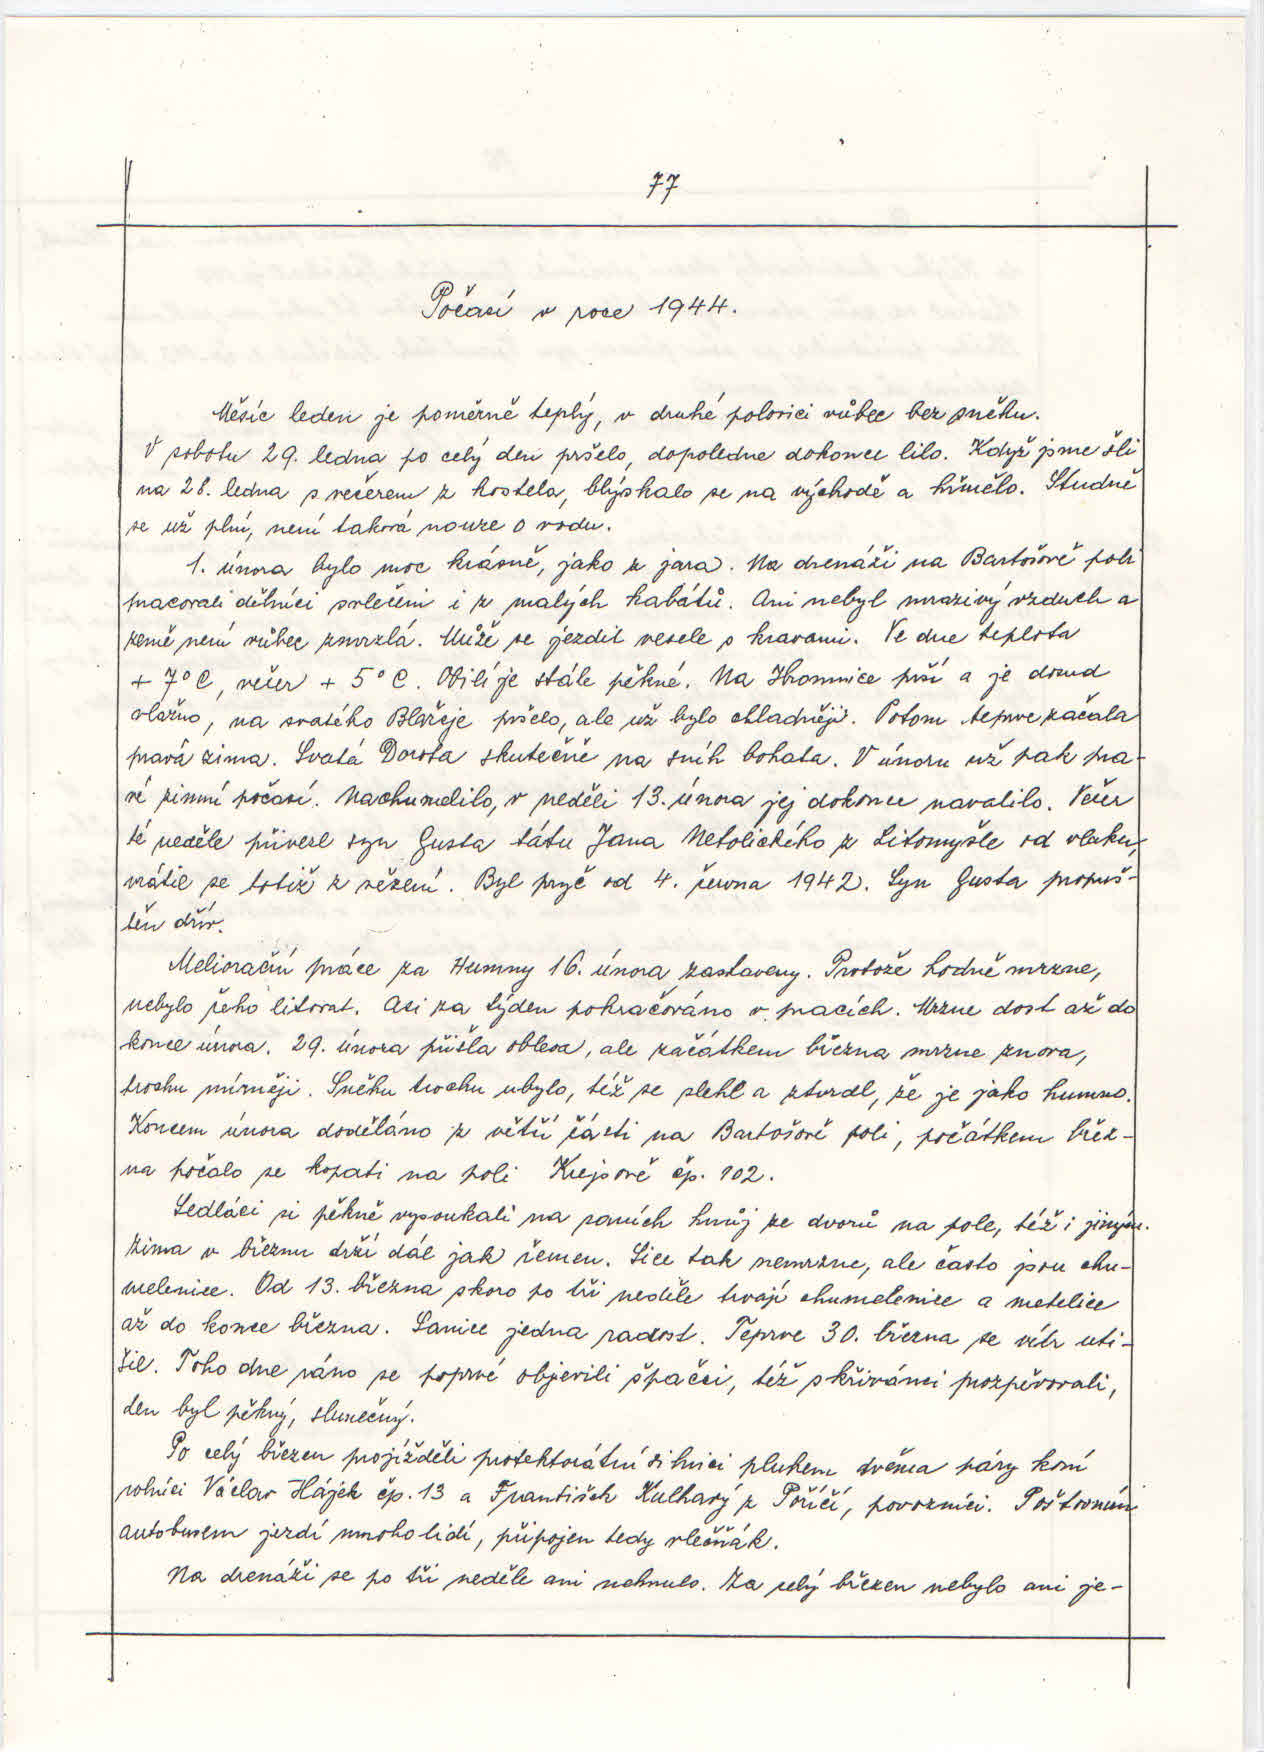 77
Počasí v roce 1944.
Měsíc leden je poměrně teplý, v druhé polovici vůbec bez sněhu.
V sobotu 29. ledna po celý den pršelo, dopoledne dokonce lilo. Když jsme šli
na 28. ledna s večerem z kostela, blýskalo se na východě a hřmělo. Studně
se už plní, není taková nouze o vodu.
1. února bylo moc krásně, jako z jara. Na drenáži na Bartošově poli
pracovali dělníci svlečeni i z malých kabátů. Ani nebyl mrazivý vzduch a
země není vůbec zmrzlá. Může se jezdit vesele s kravami. Ve dne teplota
+ 7° C, večer + 5° C. Obilí je stále pěkné. Na Hromnice prší a je dosud
vlažno, na svatého Blažeje pršelo, ale už bylo chladněji. Potom teprve začala
pravá zima. Svatá Dorota skutečně na sníh bohata. V únoru už pak pra-
vé zimní počasí. Nachumelilo, v neděli 13. února jej dokonce navalilo. Večer
té neděle přivezl syn Gusta tátu Jana Netolického z Litomyšle od vlaku,
vrátil se totiž z vězení. Byl pryč od 4. června 1942. Syn Gusta propuš-
těn dřív.
Meliorační práce za Humny 16. února zastaveny. Protože hodně mrzne,
nebylo čeho litovat. Asi za týden pokračováno v pracích. Mrzne dost až do
konce února. 29. února přišla obleva, ale začátkem března mrzne znova,
trochu mírněji. Sněhu trochu ubylo, též se slehl a ztvrdl, že je jako humno.
Koncem února doděláno z větší části na Bartošově poli, počátkem břez-
na počalo se kopati na poli Krejsově čp. 102.
Sedláci si pěkně vysoukali na saních hnůj ze dvorů na pole, též i jiným.
Zima v březnu drží dál jak řemen. Sice tak nemrzne, ale často jsou chu-
melenice. Od 13. března skoro po tři neděle trvají chumelenice a metelice
až do konce března. Sanice jedna radost. Teprve 30. března se vítr uti-
šil. Toho dne ráno se poprvé objevili špačci, též skřivánci prozpěvovali,
den byl pěkný, slunečný.
Po celý březen projížděli protektorátní silnici pluhem dvěma páry koní
rolníci Václav Hájek čp. 13 a František Kulhavý z Poříčí, povozníci. Poštovním
autobusem jezdí mnoho lidí, připojen tedy vlečňák.
Na drenáži se po tři neděle ani nehnulo. Za celý březen nebylo ani je-